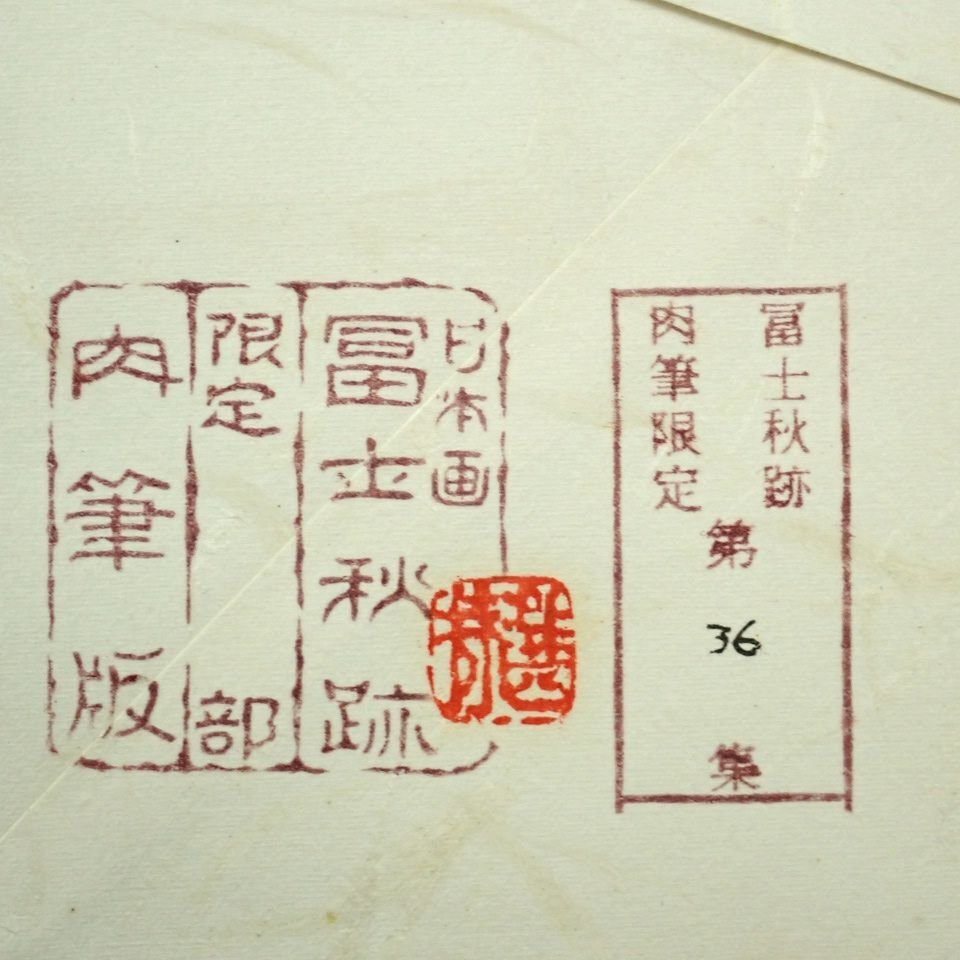 日本画
冨士秋跡
限定　部
肉筆版
冨士秋跡
肉筆限定
第 36 集